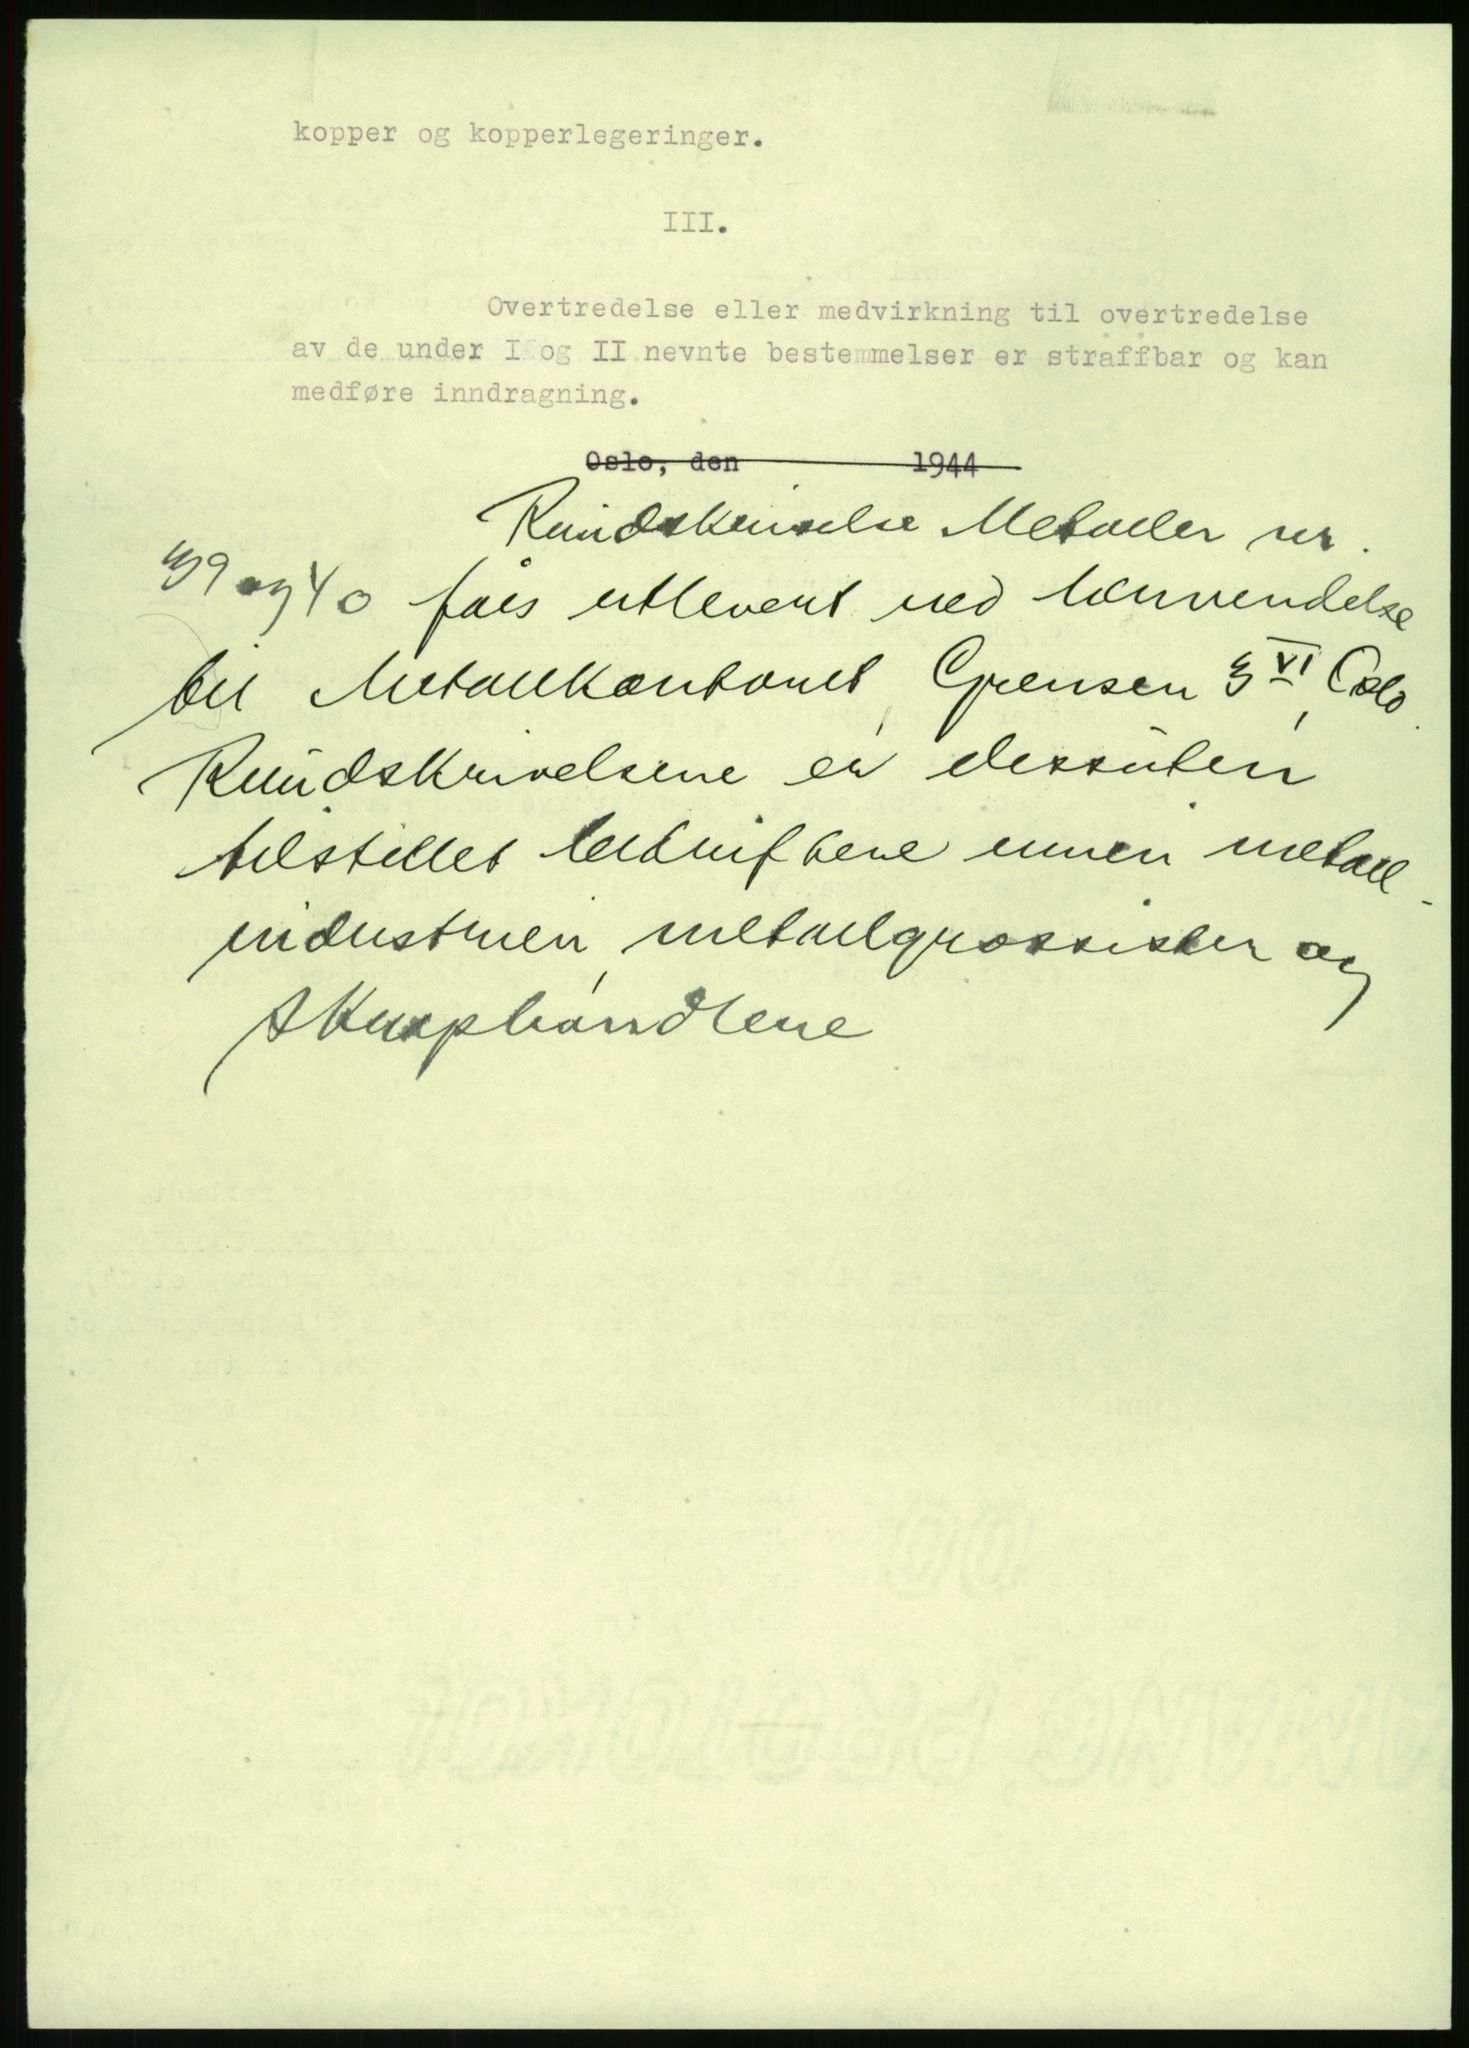 kopper og kopperlegeringer.
III.
Overtredelse eller medvirkning til overtredelse
av de under I og II nevnte bestemmelser er straffbar og kan
medføre inndragning.
Oslo, den 1944
Rundskrivelse Metaller nr.
39 og 40 fåes utlevert ved henvendelse
til Metallkontoret, Grensen 3 VI, Oslo.
Rundskrivelsene er dessuten
tilstillet bedriftene innen metall-
industrien, metallgrossister og
skraphandlene